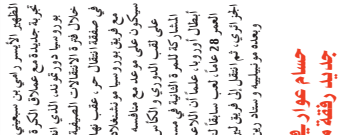 الظهير الأيسر رامي بن سبعيني
تجربة جديدة مع عملاق الكرة
بوروسيا دورتموند، الذي انـ
خلال فترة الانتقالات الصيفية
في صفقة انتقال حر، عقب نها
مع فريق بوروسيا مونشنغلاد
سيكون على موعد مع منافسة
على لقب الدوري و الكأس
المشاركة للمرة الثانية في مس
أبطال أوروبا، علما أن اللاعـ
العمر 28 عاما، لعب سابقا لـ
الجزائري، ثم انتقل إلى فريق ليـ
وبعده مونبيلييه و ستاد رين
حسام عوار يـ
جديد رفقته مـ